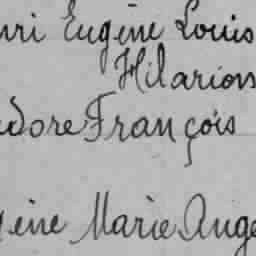 nri Eugène Louis
Hilarion
edore François
ène Marie Ange